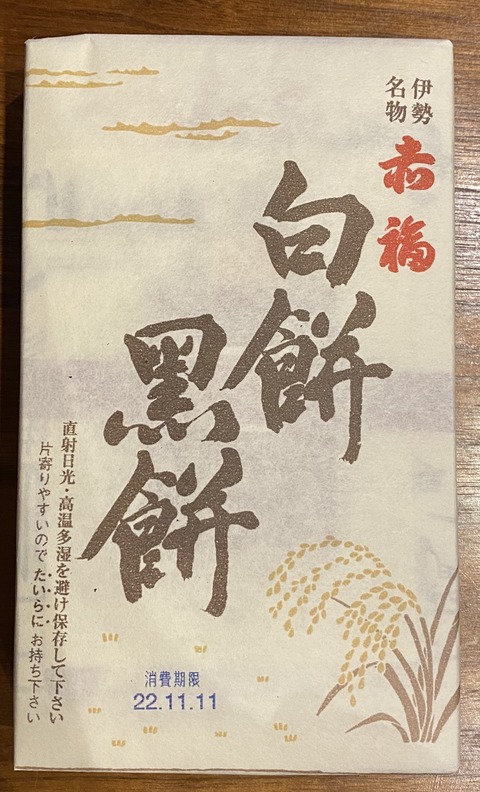 伊勢
名物
赤福
白餅
黑餅
直射日光・高温多湿を避け保存して下さい
片寄りやすいので たいらに お持ち下さい
消費期限
22.11.11